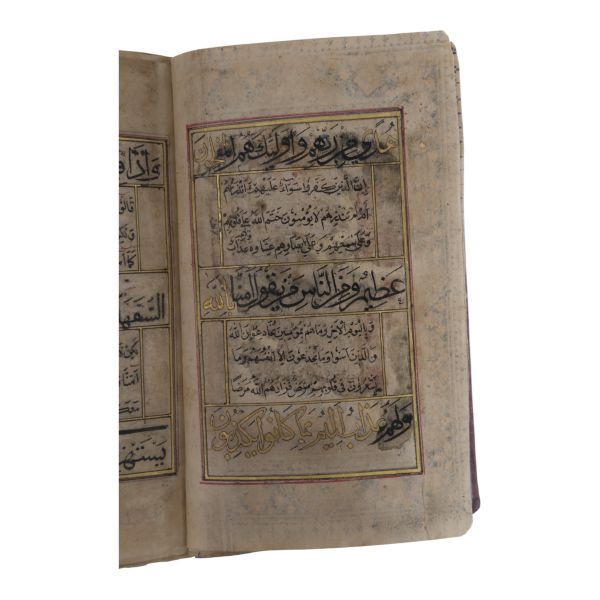 هدى من ربهم واولئك هم المفلحون
ان الذين كفروا سواء عليهم ءانذرتهم
ام لم تنذرهم لا يؤمنون ختم الله على قلوبهم
وعلى سمعهم وعلى ابصارهم غشاوة ولهم عذاب
عظيم ومن الناس من يقول امنا بالله
وباليوم الاخر وما هم بمؤمنين يخادعون الله
والذين امنوا وما يخدعون الا انفسهم وما
يشعرون في قلوبهم مرض فزادهم الله مرضا
ولهم عذاب اليم بما كانوا يكذبون
واذا
قالوا
ولكن
كما
السفها
امنا
معكم